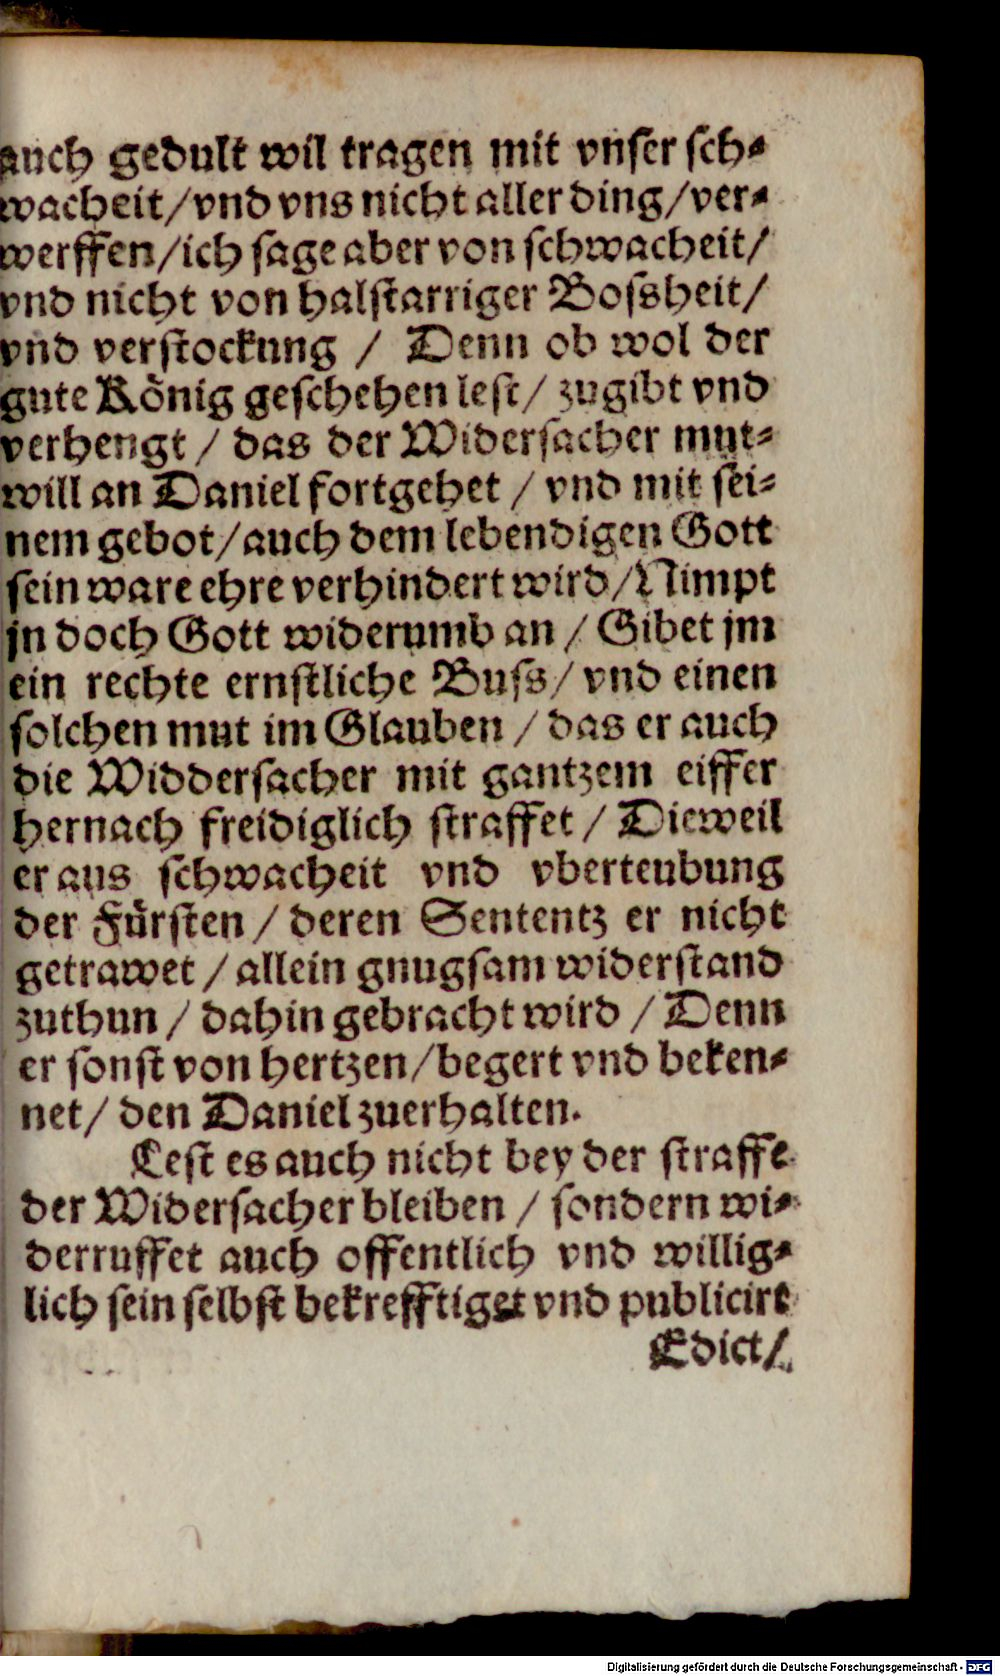 auch gedult wil tragen mit vnser sch⸗
wacheit/vnd vns nicht aller ding/ver⸗
werffen/ich sage aber von schwacheit/
vnd nicht von halstarriger Bossheit/
vnd verstockung / Denn ob wol der
gute König geschehen lest/ zugibt vnd
verhengt / das der Widersacher mut⸗
will an Daniel fortgehet / vnd mit sei⸗
nem gebot/auch dem lebendigen Gott
sein ware ehre verhindert wird/Nimpt
jn doch Gott widerumb an / Gibet jm
ein rechte ernstliche Buss/ vnd einen
solchen mut im Glauben / das er auch
die Widdersacher mit gantzem eiffer
hernach freidiglich straffet / Dieweil
er aus schwacheit vnd vberteubung
der Fürsten / deren Sententz er nicht
getrawet / allein gnugsam widerstand
zuthun / dahin gebracht wird / Denn
er sonst von hertzen/begert vnd beken⸗
net/ den Daniel zuerhalten.
Lest es auch nicht bey der straffe
der Widersacher bleiben / sondern wi⸗
derruffet auch offentlich vnd willig⸗
lich sein selbst bekrefftiget vnd publicirt
Edict/
Digitalisierung gefördert durch die Deutsche Forschungsgemeinschaft - DFG